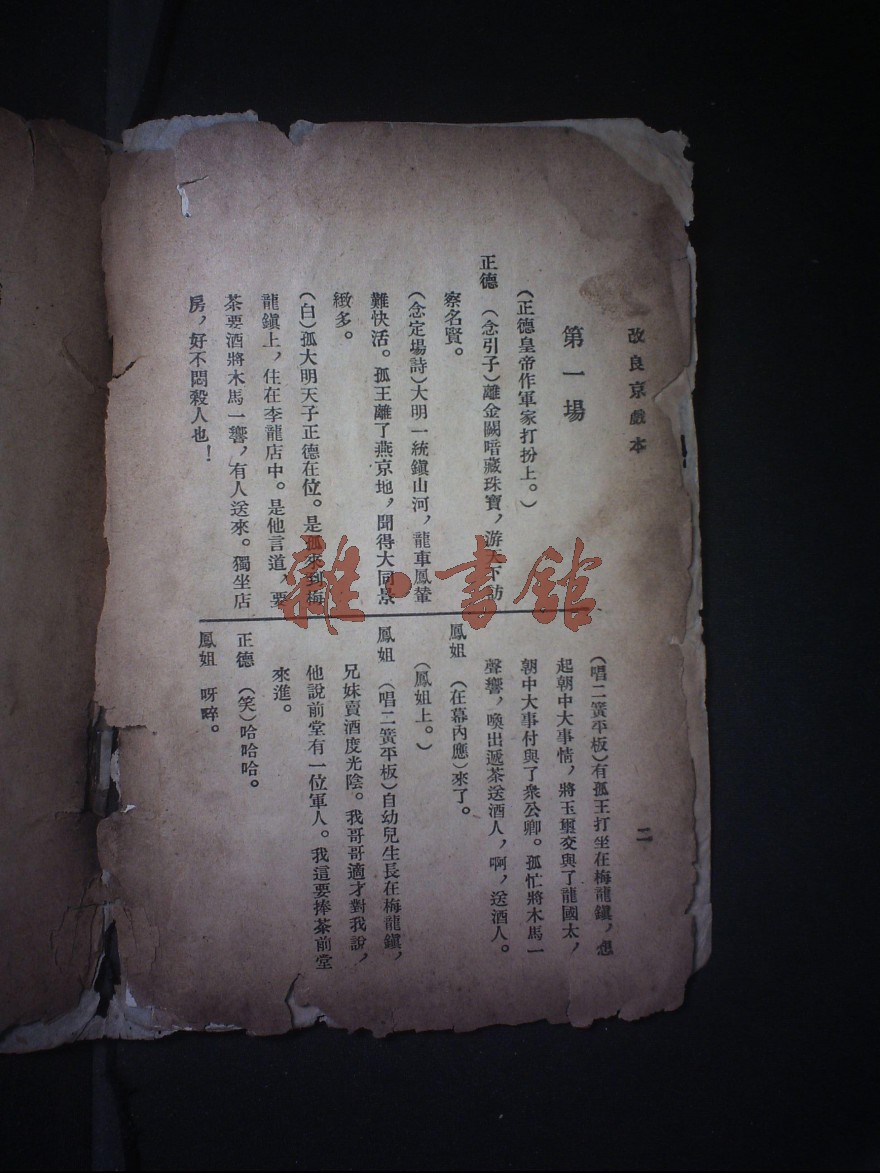 改良京戲本
二
第一場
（正德皇帝作軍家打扮上。）
正德　（念引子）離金闕暗藏珠寶，游天下訪
察名賢。
（念定場詩）大明一統鎭山河，龍車鳳輦
難快活。孤王離了燕京地，聞得大同景
緻多。
（白）孤大明天子正德在位。是孤來到梅
龍鎭上，住在李龍店中。是他言道，要
茶要酒將木馬一響，有人送來。獨坐店
房，好不悶殺人也！
（唱二簧平板）有孤王打坐在梅龍鎭，想
起朝中大事情，將玉璽交與了龍國太，
朝中大事付與了衆公卿。孤忙將木馬一
聲響，喚出遞茶送酒人，啊，送酒人。
鳳姐　（在幕內應）來了。
（鳳姐上。）
鳳姐　（唱二簧平板）自幼兒生長在梅龍鎭，
兄妹賣酒度光陰。我哥哥適才對我說，
他說前堂有一位軍人。我這要捧茶前堂
來進。
正德　（笑）哈哈哈。
鳳姐　呀啐。
雜·書館